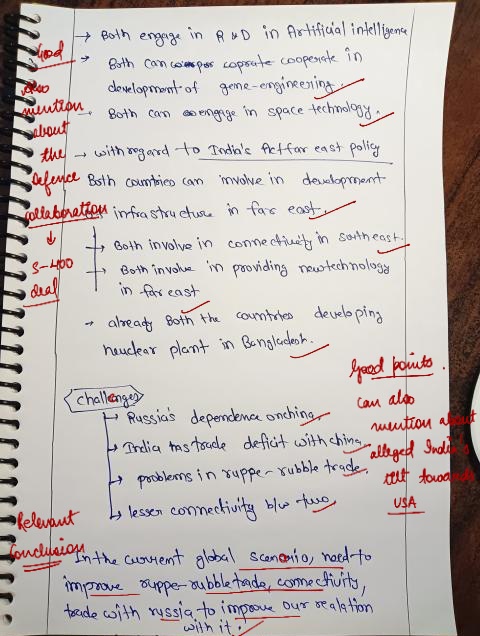 → Both engage in R & D in Artificial intelligence
→ Both can cooperate in
development of gene-engineering.
→ Both can engage in space technology.
→ with regard to India's Act far east policy
Both countries can involve in development
infrastructure in far east.
→ Both involve in connectivity in south east.
→ Both involve in providing new technology
in far east
→ already Both the countries developing
neuclear plant in Bangladesh.
Good
also
mention
about
the
Defence
collaboration
↓
S-400
deal
Challenges
→ Russia's dependence on china,
→ India has trade deficit with china
→ problems in ruppe-rubble trade,
→ lesser connectivity b/w two
Good points.
can also
mention about
alleged India's
tilt towards
USA
Relevant
Conclusion
In the current global scenario, need to
improve ruppe-rubble trade, connectivity,
trade with russia to improve our realation
with it.